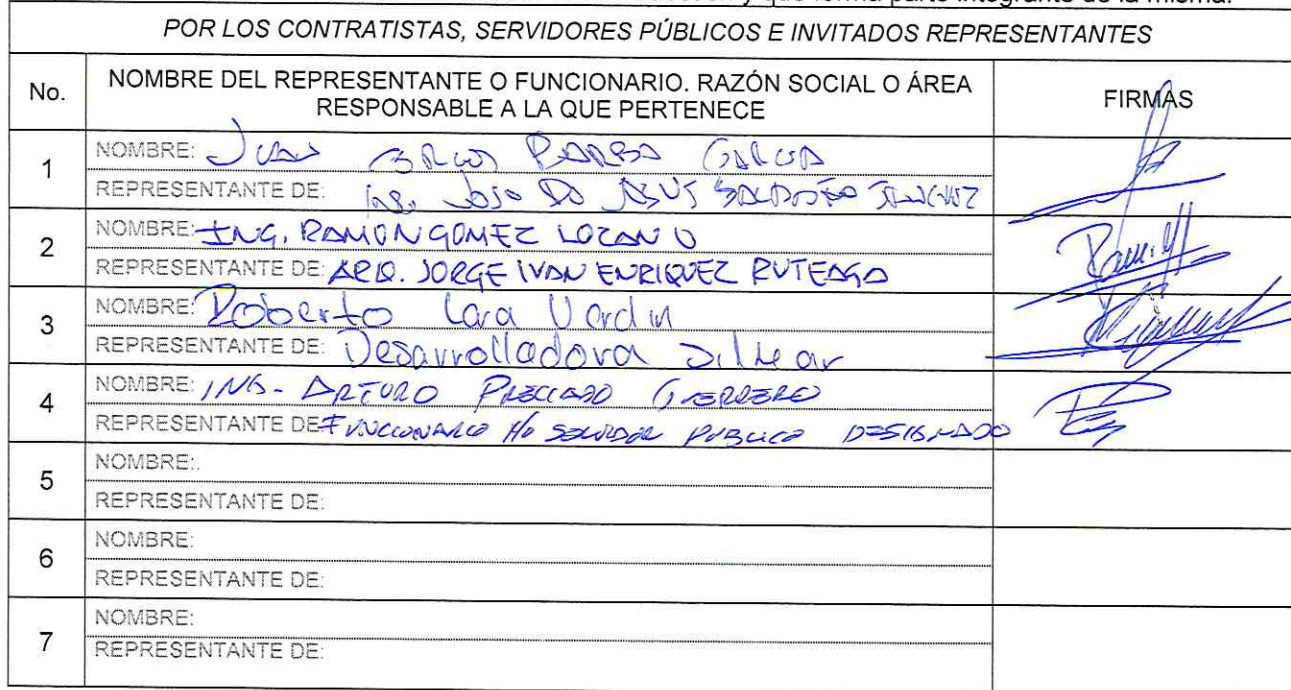 y que forma parte integrante de la misma.
POR LOS CONTRATISTAS, SERVIDORES PÚBLICOS E INVITADOS REPRESENTANTES
No.
NOMBRE DEL REPRESENTANTE O FUNCIONARIO. RAZÓN SOCIAL O ÁREA
RESPONSABLE A LA QUE PERTENECE
FIRMAS
1
NOMBRE: JUAN CARLOS BARBA GARCIA
REPRESENTANTE DE: ING. JOSE DE JESUS
2
NOMBRE: ING. RAMON GOMEZ LOZANO
REPRESENTANTE DE: ARQ. JORGE IVAN ENRIQUEZ RUTEAGA
3
NOMBRE: Roberto Lara Verdin
REPRESENTANTE DE: Desarrolladora
4
NOMBRE: ING- ARTURO PRECIADO GUERRERO
REPRESENTANTE DE: FUNCIONARIO SERVIDOR PUBLICO DESIGNADO
5
NOMBRE:.
REPRESENTANTE DE:
6
NOMBRE:
REPRESENTANTE DE:
7
NOMBRE:
REPRESENTANTE DE: